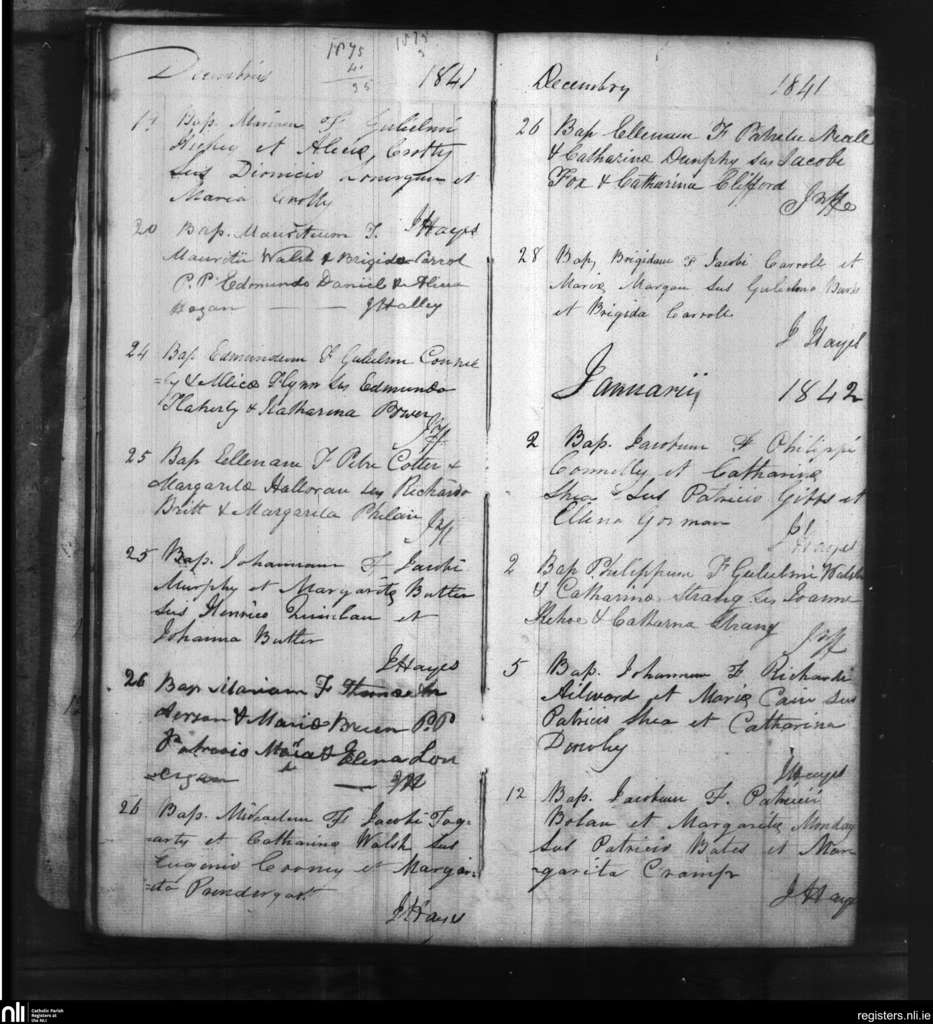 Decembris 1841
1875
4
35
1878
3
Bap. Mariam F Gulielmi
et Alicia Crotty
Sus Dionicio et
Maria Crotty
J Hayes
20 Bap. Mauritium F.
Mauritii Walsh & Brigida Carrol
P.P. Edmundo Daniel & Alicia
Hogan
J Halley
24 Bap Edmundum F Gulielmi Conne
=ly & Alicia Flynn Sus Edmundo
Flaherty & Katharina Power
25 Bap Ellenam F Petri Cotter &
Margarita Halloran Sus Richardo
Britt & Margarita Phelan
25 Bap. Johannam F Jacobi
Murphy et Margarita Butler
Sus Henrico Quinlan et
Johanna Butler
J Hayes
26 Bap Mariam F
& Maria Breen P.P
& Elena Lon
ergan
26 Bap. Michaelem F Jacobi Fog-
arty et Catharina Walsh Sus
Eugenio Cooney et Margar=
=ita Prendergast
J Hayes
Decembry 1841
26 Bap Ellenam F Neall
& Catharina Dunphy sus Jacobi
Fox & Catharina Clifford
28 Bap, Brigidam F Jacobi Carroll et
Maria Sus Gulielmo
et Brigida Carroll
J Hayes
Januarii 1842
2 Bap. Jacobum F Philippi
Connelly et Catharina
Shea Sus Patricio Gibbs et
Ellena Gorman
J Hayes
2 Bap Philippum F Gulielmi Walsh
& Catharina Strang Sus Joanne
Kehoe & Catharna Strang
5 Bap. Johannem F Richardi
Ailward et Maria Cain Sus
Patricio Shea et Catharina
J Hayes
12 Bap. Jacobum F. Patricii
Bolan et Margarita Monday
Sus Patricio Bates et Mar
-garita Cramp
J Hayes
nli
Catholic Parish
Registers at
the NLI
registers.nli.ie